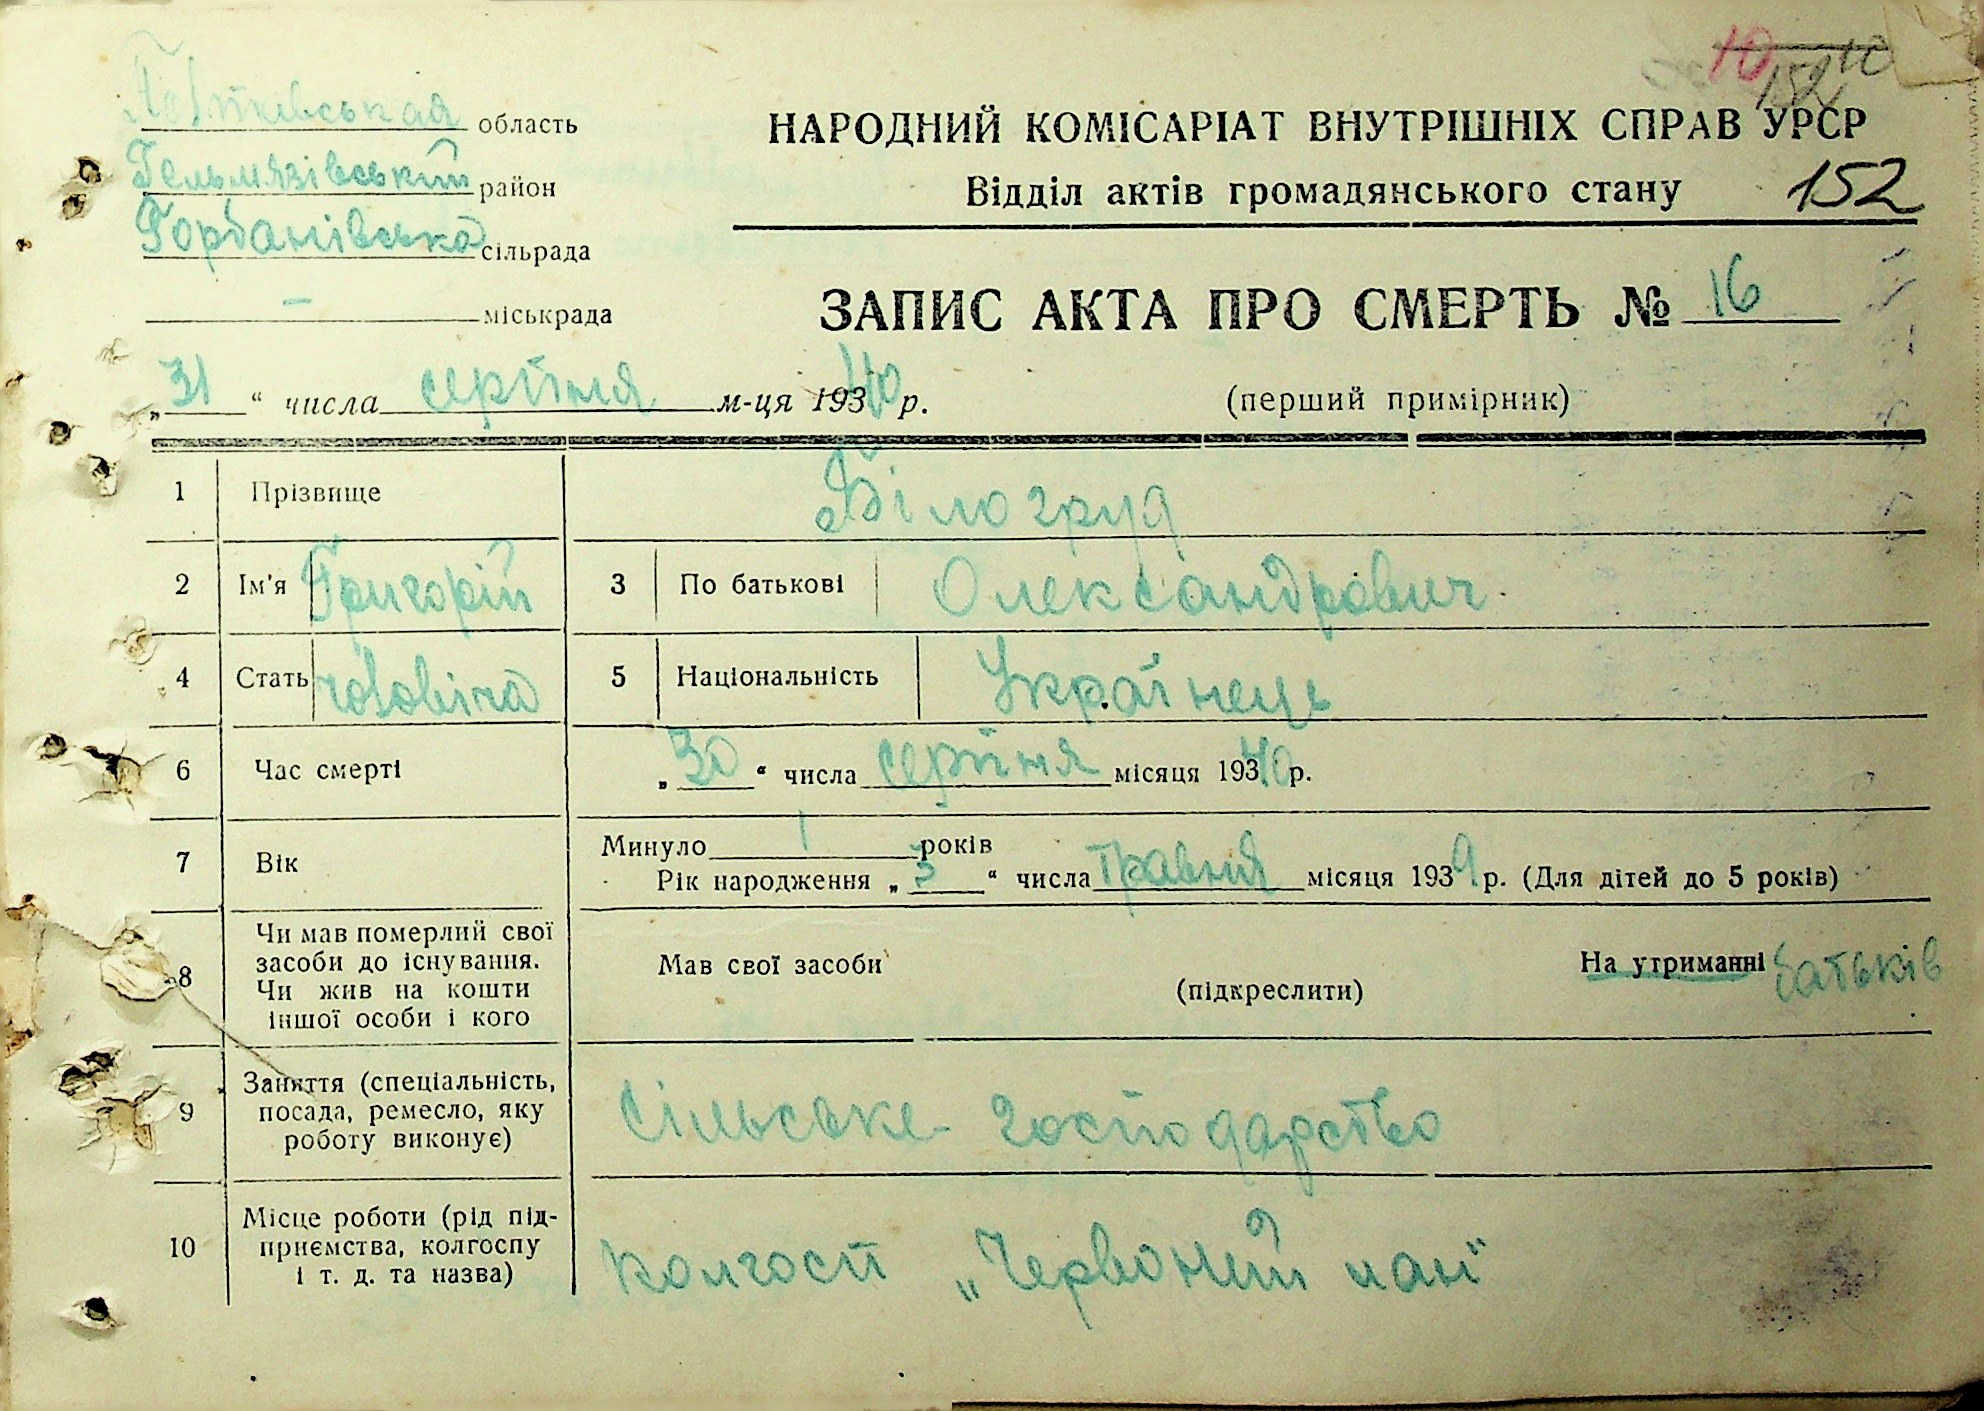 10 10
152
Полтавська область
НАРОДНИЙ КОМІСАРІАТ ВНУТРІШНІХ СПРАВ УРСР
Гельмязівський район
Відділ актів громадянського стану 152
Горбанівська сільрада
— міськрада
ЗАПИС АКТА ПРО СМЕРТЬ № 16
„31“ числа серпня м-ця 1940 р.
(перший примірник)
1 Прізвище Білогруд
2 Ім'я Григорій 3 По батькові Олександрович
4 Стать чоловіча 5 Національність Українець
6 Час смерті „30“ числа серпня місяця 1940 р.
7 Вік Минуло 1 років
Рік народження „3“ числа травня місяця 1939 р. (Для дітей до 5 років)
8 Чи мав померлий свої
засоби до існування.
Чи жив на кошти
іншої особи і кого
Мав свої засоби
(підкреслити)
На утриманні батьків
9 Заняття (спеціальність,
посада, ремесло, яку
роботу виконує)
Сільське господарство
10 Місце роботи (рід під-
приємства, колгоспу
і т. д. та назва)
колгосп „Червоний лан“